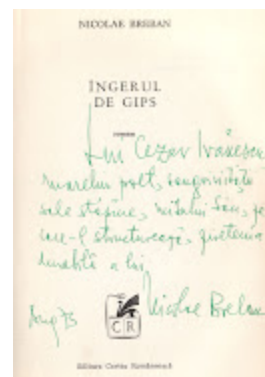 NICOLAE BREBAN
ÎNGERUL
DE GIPS
roman
Lui Cezar Ivănescu
marelui poet, sangvinității
sale stăpîne, mitului său, pe
care-l structurează, prietenia
durabilă a lui
Nicolae Breban
Aug 73
CR
Editura Cartea Românească